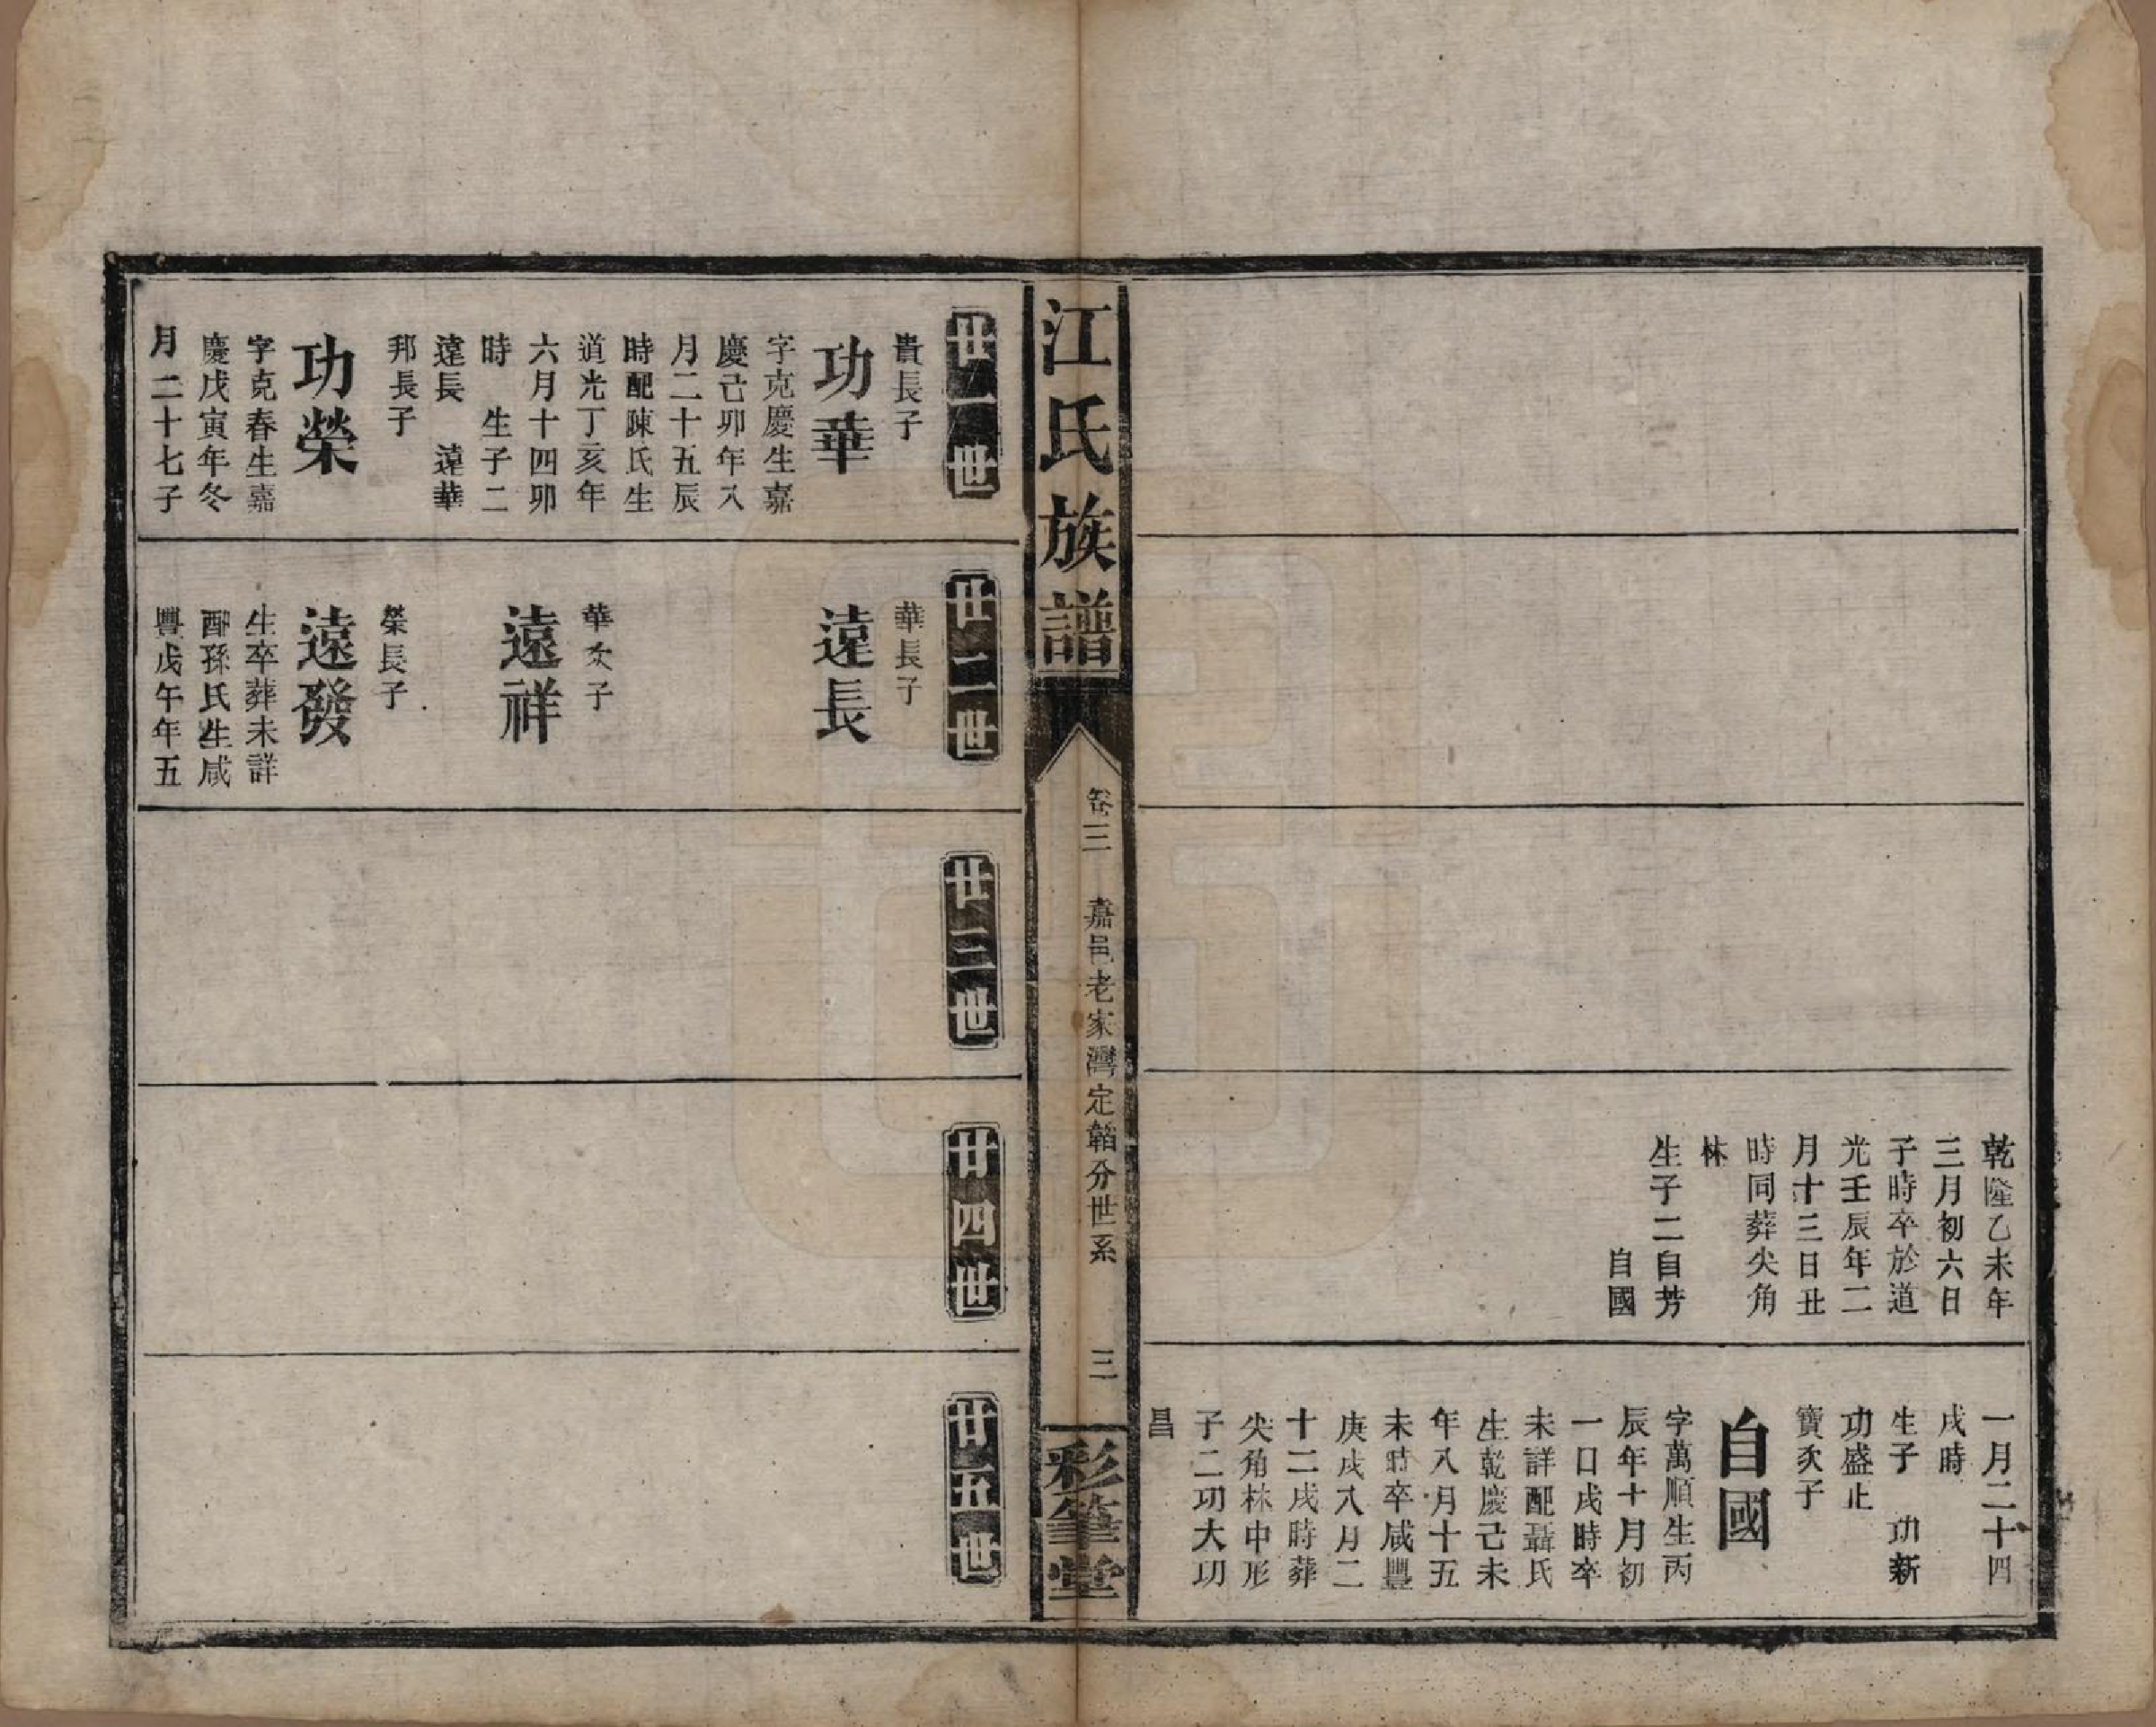 乾隆乙未年
三月初六日
子時卒於道
光壬辰年二
月十三日丑
時同葬尖角
林
生子二自芳
自國
一月二十四
戌時
生子 功新
功盛止
寶次子
自國
字萬順生丙
辰年十月初
一日戌時卒
未詳配聶氏
生乾慶己未
年八月十五
未時卒咸豐
庚戌八月二
十二戌時葬
尖角林中形
子二功大功
昌
江氏族譜
卷三 嘉邑老家灣定韜分世系 三
彩筆堂
廿一世
貴長子
功華
字克慶生嘉
慶己卯年八
月二十五辰
時配陳氏生
道光丁亥年
六月十四卯
時 生子二
遠長 遠華
邦長子
功榮
字克春生嘉
慶戊寅年冬
月二十七子
廿二世
華長子
遠長
華次子
遠祥
榮長子
遠發
生卒葬未詳
配孫氏生咸
豐戊午年五
廿三世
廿四世
廿五世